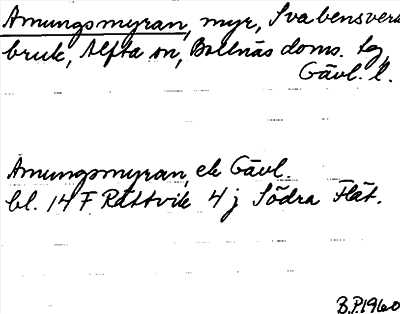 Amungsmyran, myr, Svabensverks
bruk, Alfta sn, Bollnäs doms. tg,
Gävl. l.
Amungsmyran, ek Gävl.
bl. 14 F Rättvik 4 j Södra Flät.
B.P. 1960